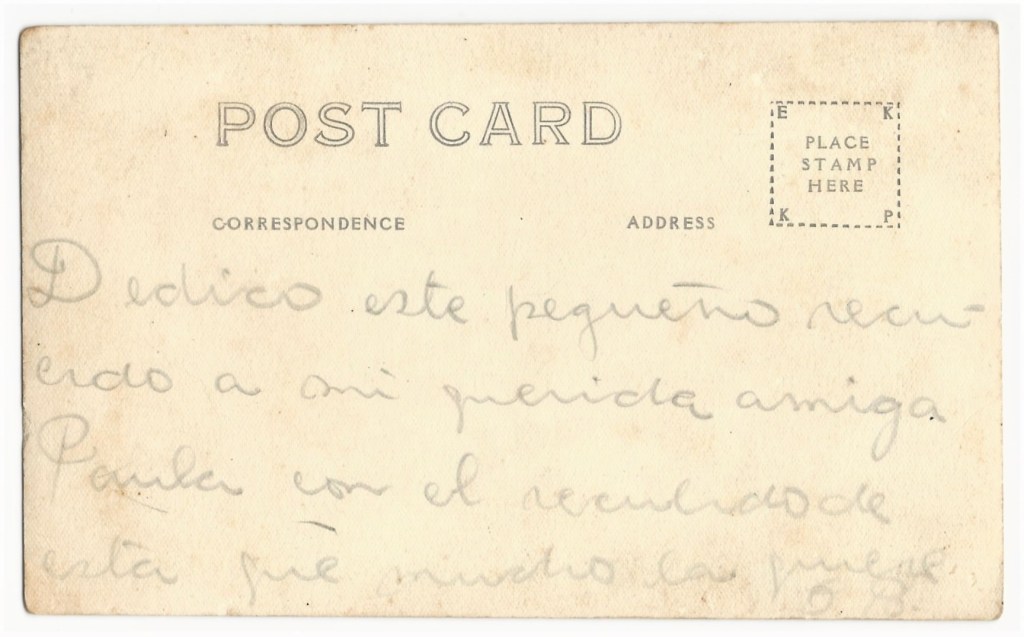 POST CARD
E K
PLACE
STAMP
HERE
K P
CORRESPONDENCE
ADDRESS
Dedico este pequeño recu-
erdo a mi querida amiga
Paula con el de
esta que mucho la quiere